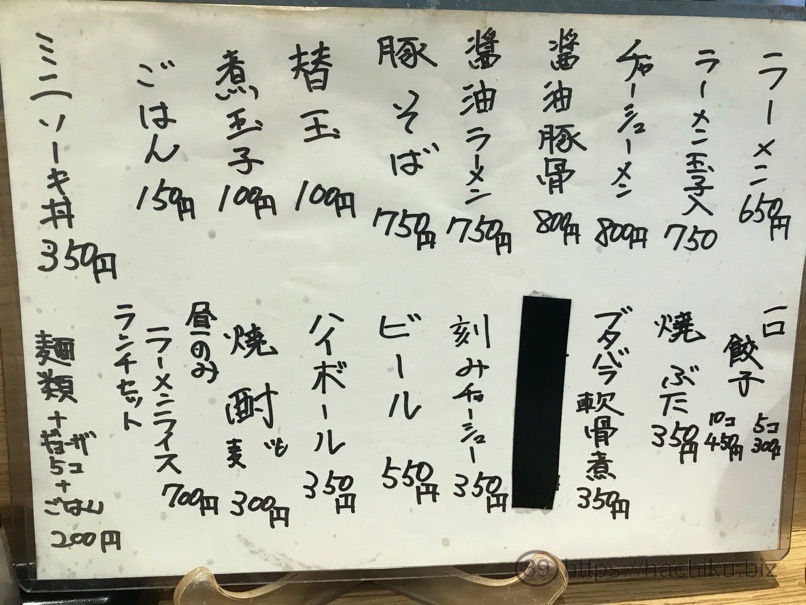 ラーメン 650円
ラーメン玉子入 750
チャーシューメン 800円
醤油豚骨 800円
醤油ラーメン 750円
豚そば 750円
替玉 100円
煮玉子 100円
ごはん 150円
ミニソーキ丼 350円
一口餃子
5コ 300円
10コ 450円
焼ぶた 350円
ブタバラ軟骨煮 350円
刻みチャーシュー 350円
ビール 550円
ハイボール 350円
焼酎 麦 いも 300円
昼のみ
ラーメンライス 700円
ランチセット
麺類+ギョーザ5コ+ごはん 200円
39 https://hachiku.biz